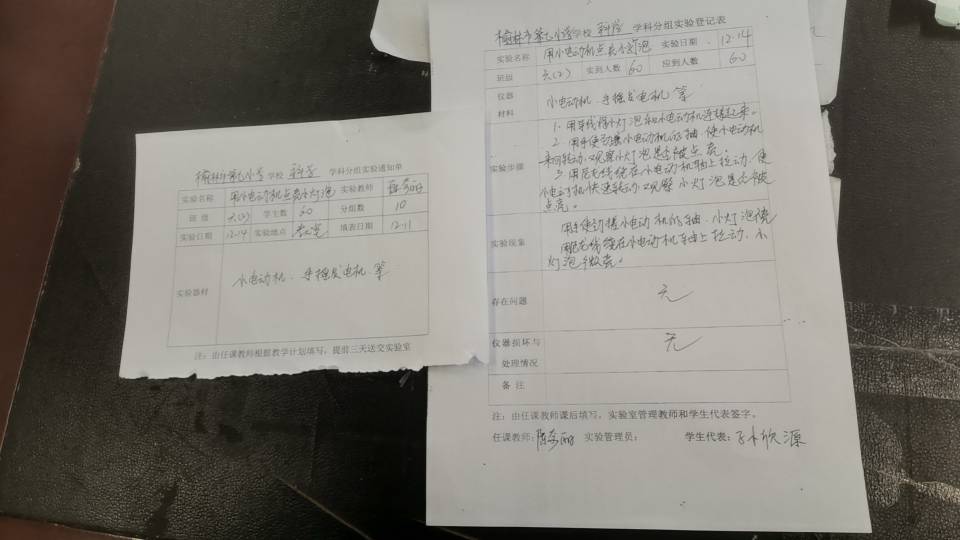 榆林市第九小学学校 科学 学科分组实验通知单
实验名称 用小电动机点亮小灯泡 实验教师
班 级 六(2) 学生数 60 分组数 10
实验日期 12.14 实验地点 教室 填表日期 12.11
实验器材 小电动机、手摇发电机等
注：由任课教师根据教学计划填写，提前三天送交实验室
榆林市第九小学学校 科学 学科分组实验登记表
实验名称 用小电动机点亮小灯泡 实验日期 12.14
班级 六(2) 实到人数 60 应到人数 60
仪器材料 小电动机、手摇发电机等
实验步骤
1. 用导线将小灯泡和小电动机连接起来。
2. 用手使劲捻小电动机的轴，使小电动机
来回转动，观察小灯泡是否被点亮。
3. 用尼龙线绕在小电动机轴上拉动，使
小电动机快速转动，观察小灯泡是否被
点亮。
实验现象
用手使劲搓小电动机的轴，小灯泡
用尼龙线绕在小电动机车轴上拉动，小
灯泡微亮。
存在问题 无
仪器损坏与处理情况 无
备 注
注：由任课教师课后填写，实验室管理教师和学生代表签字。
任课教师： 实验管理员： 学生代表： 欣源